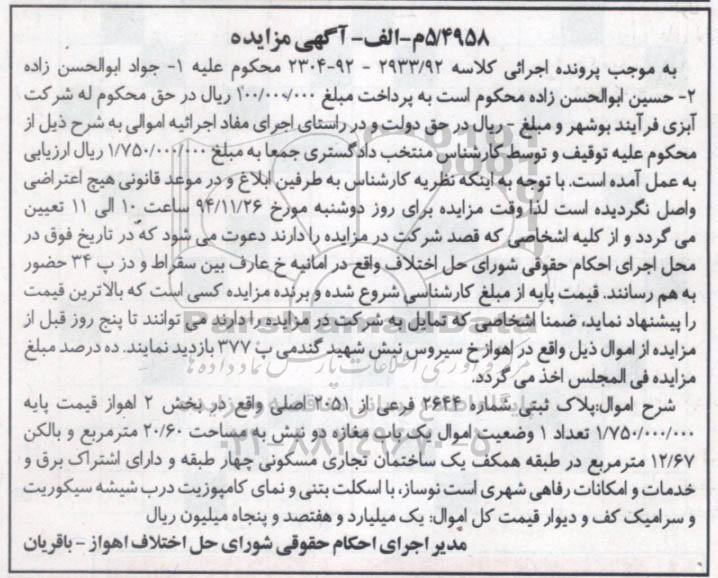 ۵/۴۹۵۸م-الف-آگهی مزایده
به موجب پرونده اجرائی کلاسه ۲۹۳۳/۹۲ - ۹۲-۲۳۰۴ محکوم علیه ۱- جواد ابوالحسن زاده
۲- حسین ابوالحسن زاده محکوم است به پرداخت مبلغ ۱۰۰/۰۰۰/۰۰۰ ریال در حق محکوم له شرکت
آبزی فرآیند بوشهر و مبلغ - ریال در حق دولت و در راستای اجرای مفاد اجرائیه اموالی به شرح ذیل از
محکوم علیه توقیف و توسط کارشناس منتخب دادگستری جمعا به مبلغ ۱/۷۵۰/۰۰۰/۰۰۰ ریال ارزیابی
به عمل آمده است. با توجه به اینکه نظریه کارشناس به طرفین ابلاغ و در موعد قانونی هیچ اعتراضی
واصل نگردیده است لذا وقت مزایده برای روز دوشنبه مورخ ۹۴/۱۱/۲۶ ساعت ۱۰ الی ۱۱ تعیین
می گردد و از کلیه اشخاصی که قصد شرکت در مزایده را دارند دعوت می شود که در تاریخ فوق در
محل اجرای احکام حقوقی شورای حل اختلاف واقع در امانیه خ عارف بین سقراط و دز پ ۳۴ حضور
به هم رسانند. قیمت پایه از مبلغ کارشناسی شروع شده و برنده مزایده کسی است که بالاترین قیمت
را پیشنهاد نماید، ضمنا اشخاصی که تمایل به شرکت در مزایده را دارند می توانند تا پنج روز قبل از
مزایده از اموال ذیل واقع در اهواز خ سیروس نبش شهید گندمی پ ۳۷۷ بازدید نمایند. ده درصد مبلغ
مزایده فی المجلس اخذ می گردد.
شرح اموال:پلاک ثبتی شماره ۲۶۴۴ فرعی از ۲۰۵۱ اصلی واقع در بخش ۲ اهواز قیمت پایه
۱/۷۵۰/۰۰۰/۰۰۰ تعداد ۱ وضعیت اموال یک باب مغازه دو نبش به مساحت ۲۰/۶۰ مترمربع و بالکن
۱۲/۶۷ مترمربع در طبقه همکف یک ساختمان تجاری مسکونی چهار طبقه و دارای اشتراک برق و
خدمات و امکانات رفاهی شهری است نوساز، با اسکلت بتنی و نمای کامپوزیت درب شیشه سیکوریت
و سرامیک کف و دیوار قیمت کل اموال: یک میلیارد و هفتصد و پنجاه میلیون ریال
مدیر اجرای احکام حقوقی شورای حل اختلاف اهواز - باقریان
ParsNamadData
مرکز فرآوری اطلاعات پارس نماد داده ها